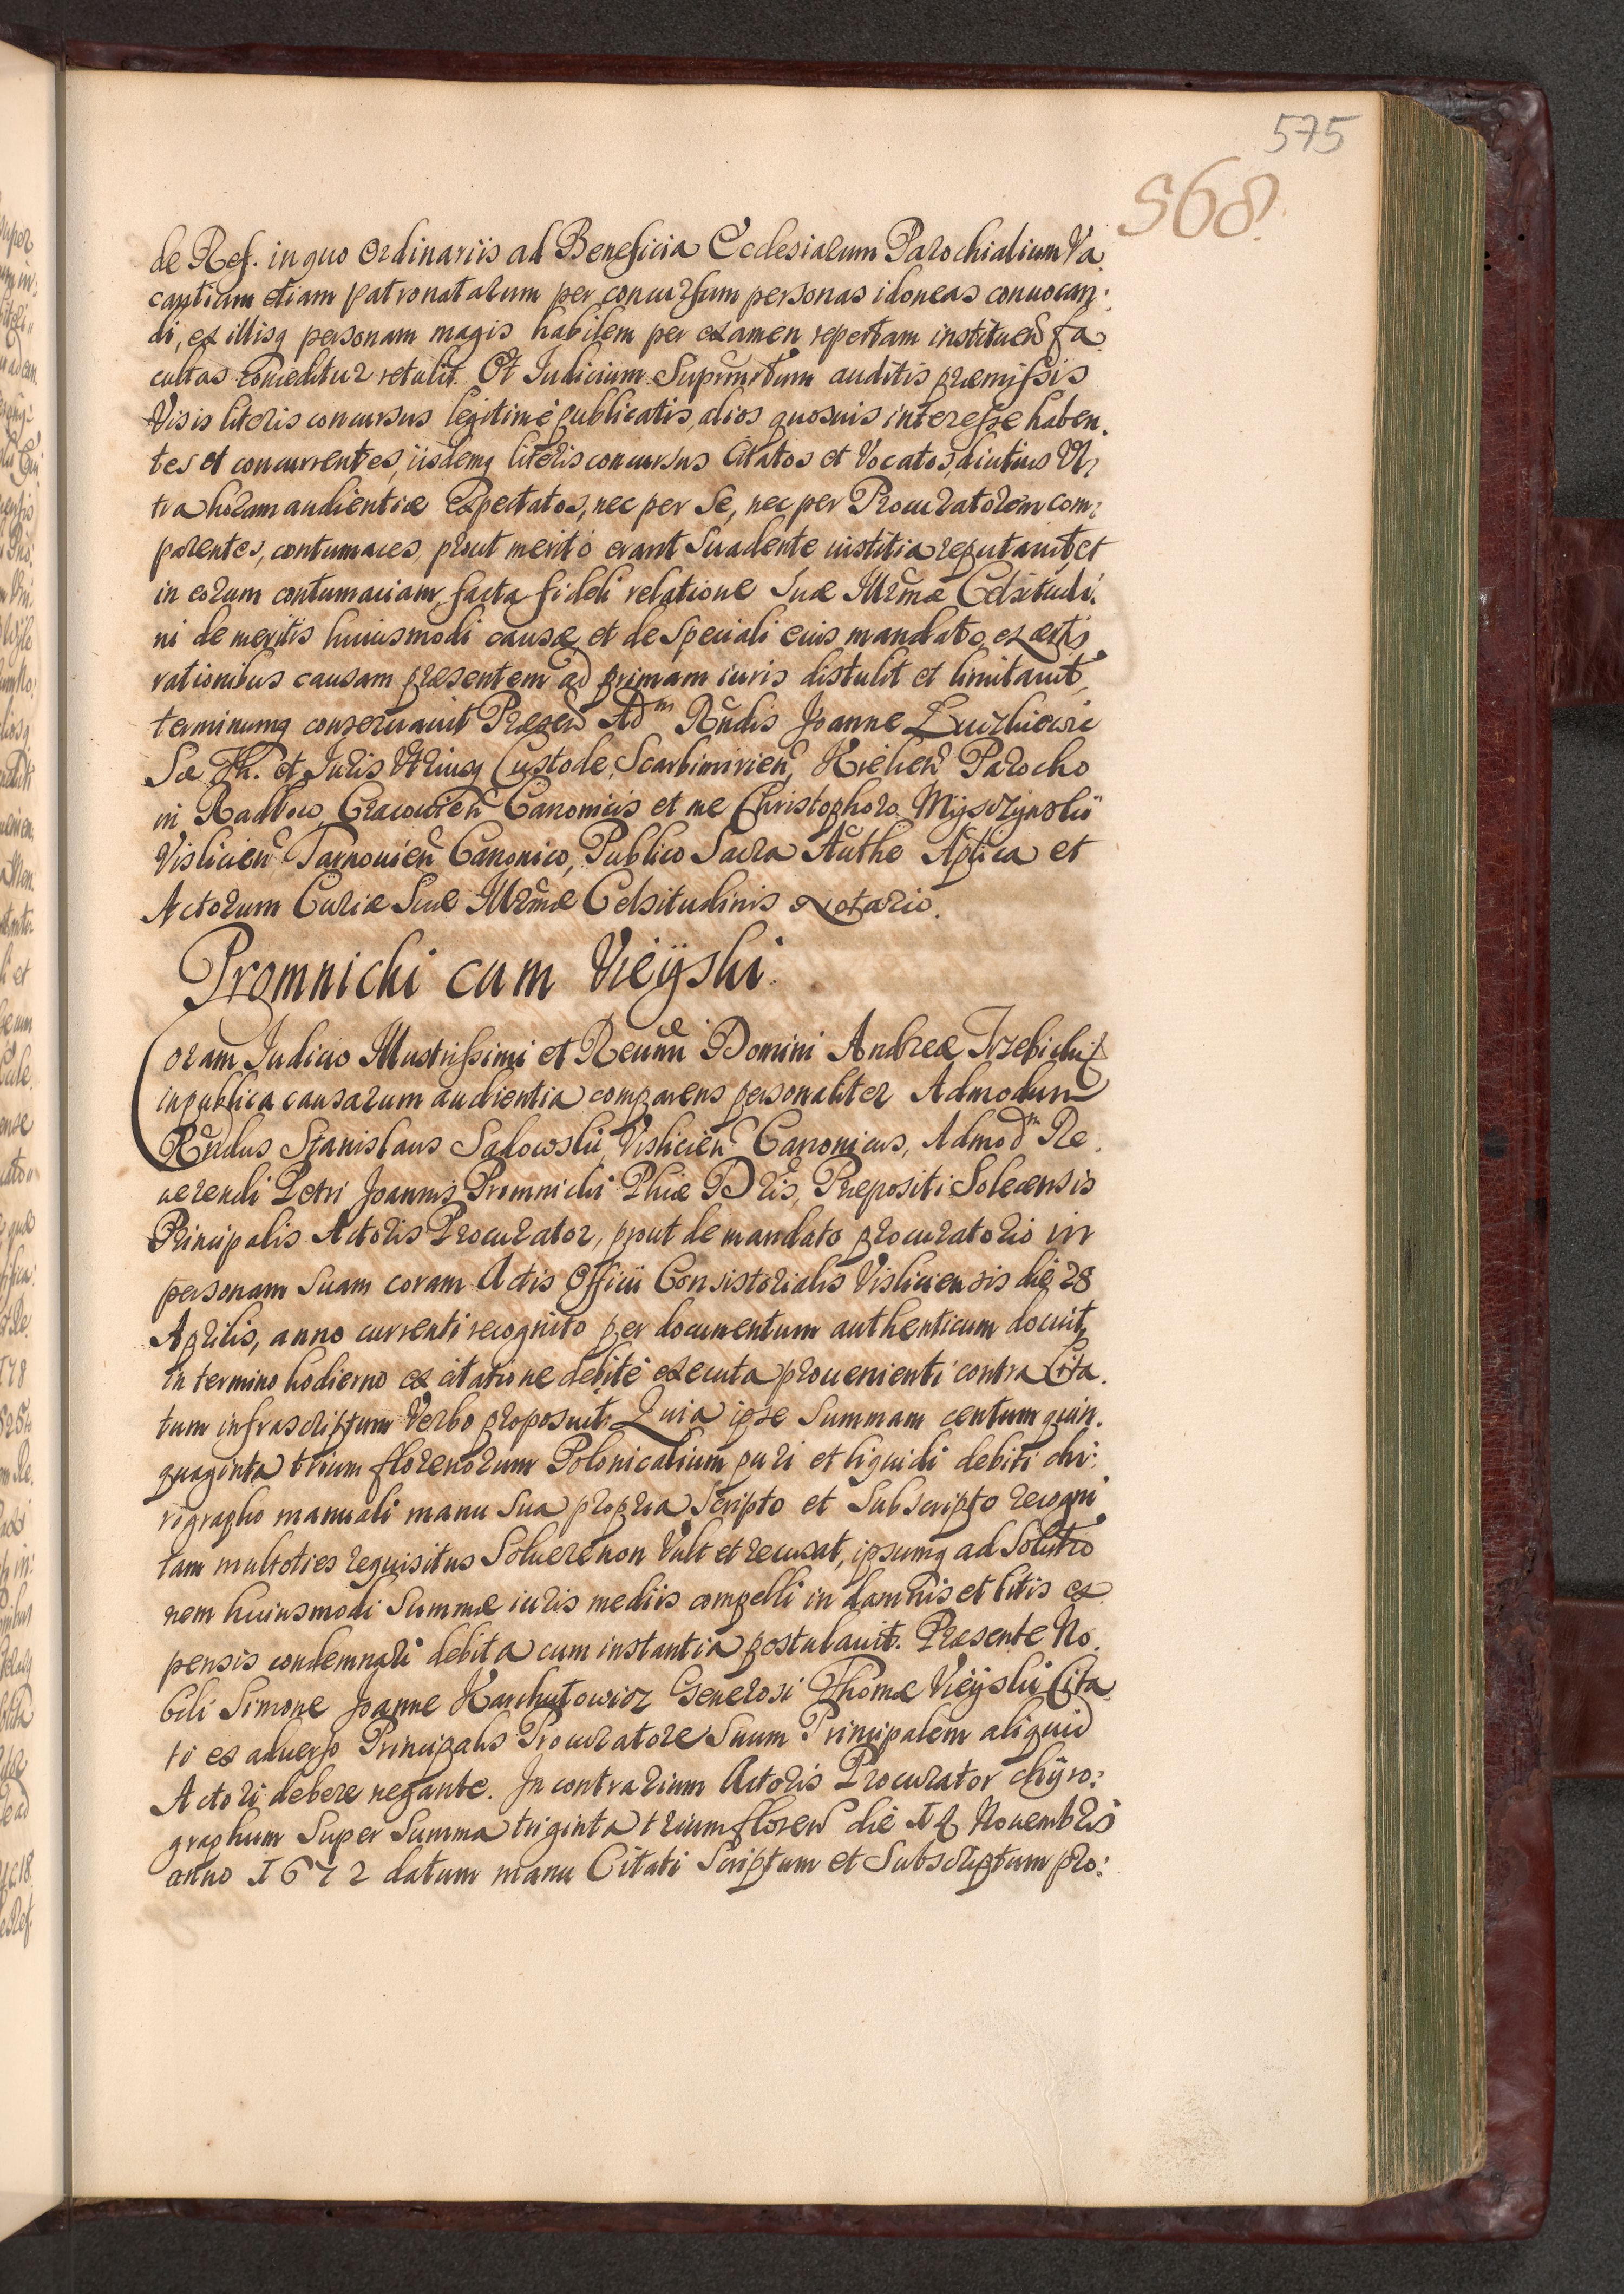 575
568.
de Ref. in quo Ordinariis ad Beneficia Ecclesiarum Parochialium Va.
cantium etiam patronatarum per concursum personas idoneas conuocan:
di, ex illisq personam magis habilem per examen repertam instituen̄ fa
cultas conceditur retulit. Et Iudicium Supům̄tum auditis præmissis
Visis literis concursus legitimè publicatis, alios quosuis interesse haben.
tes et concurrentes, iisdemq literis concursus Citatos et Vocatos, diutius Vl,
tra horam audientiæ expectatos, nec per Se, nec per Procuratorem com:
parentes, contumaces, prout meritò erant Suadente iustitia reputauit, et
in eorum contumaciam facta fideli relatione Suæ Illr̄mæ Celsitudi:
ni de meritis huiusmodi causæ et de Speciali eius mandato ex certis
rationibus causam præsentem ad primam iuris distulit et limitauit,
terminumq conseruauit Præsen̄ Adm Rn̄dis Joanne
Sæ Th. et Juris Vtriusq Custode, Scarbimirien̄, Kielien̄ Parocho
in Radłow, Cracouien̄ Canonicis et me Christophoro Mysczynskii
Vislicien̄ Tarnouien̄ Canonico, Publico Sacra Authe Aplica et
Actorum Curiæ Suæ Illr̄mæ Celsitudinis Notario.
Promnicki cum Vieÿski.
Coram Iudicio Illustrissimi et Reumi Domini Andreæ Trzebicki
in publica causarum audientia comparens personaliter Admodum
Rn̄dus Stanislaus Sakowski, Vislicien̄ Canonicus, Admodm Re.
uerendi Petri Joannis Promnicki Phiæ Dris, Præpositi Solecensis
Principalis Actoris Procurator, prout de mandato procuratorio in
personam Suam coram Actis Officii Consistorialis Visliciensis die 28
Aprilis, anno currenti recognito per documentum authenticum docuit,
in termino hodierno ex citatione debitè executa prouenienti contra Cita.
tum infrascriptum Verbo proposuit. Quia ipse Summam centum quin.
quaginta trium florenorum Polonicalium puri et liquidi debiti chi:
rographo manuali manu Sua propria Scripto et Subscripto recogni
tam multoties requisitus Soluere non Vult et recusat, ipsumq ad Solutio
nem huiusmodi Summæ iuris mediis compelli in damnis et litis ex
pensis condemnari debita cum instantia postulauit. Præsente No.
bili Simone Joanne Karchutowicz Generosi Thomæ Vieÿski Cita
ti ex aduerso Principalis Procuratore Suum Principalem aliquid
Actori debere negante. In contrarium Actoris Procurator chÿro:
graphum Super Summa triginta trium floren̄ die Novembris
anno 1672 datum manu Citati Scriptum et Subscriptum pro: